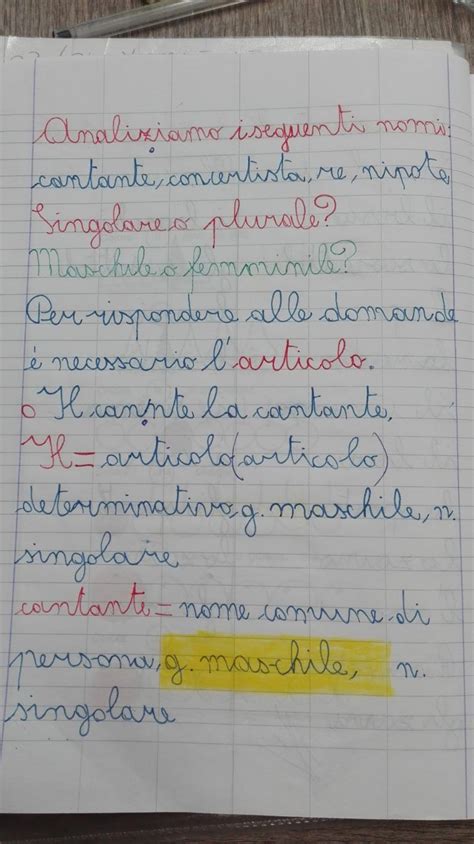 Analiziamo i seguenti nomi:
cantante, concertista, re, nipote
Singolare o plurale?
Maschile o femminile?
Per rispondere alle domande
é necessario l'articolo.
o Il cannte la cantante,
Il = articolo (articolo)
determinativo, g. maschile, n.
singolare
cantante = nome comune di
persona, g. maschile, n.
singolare